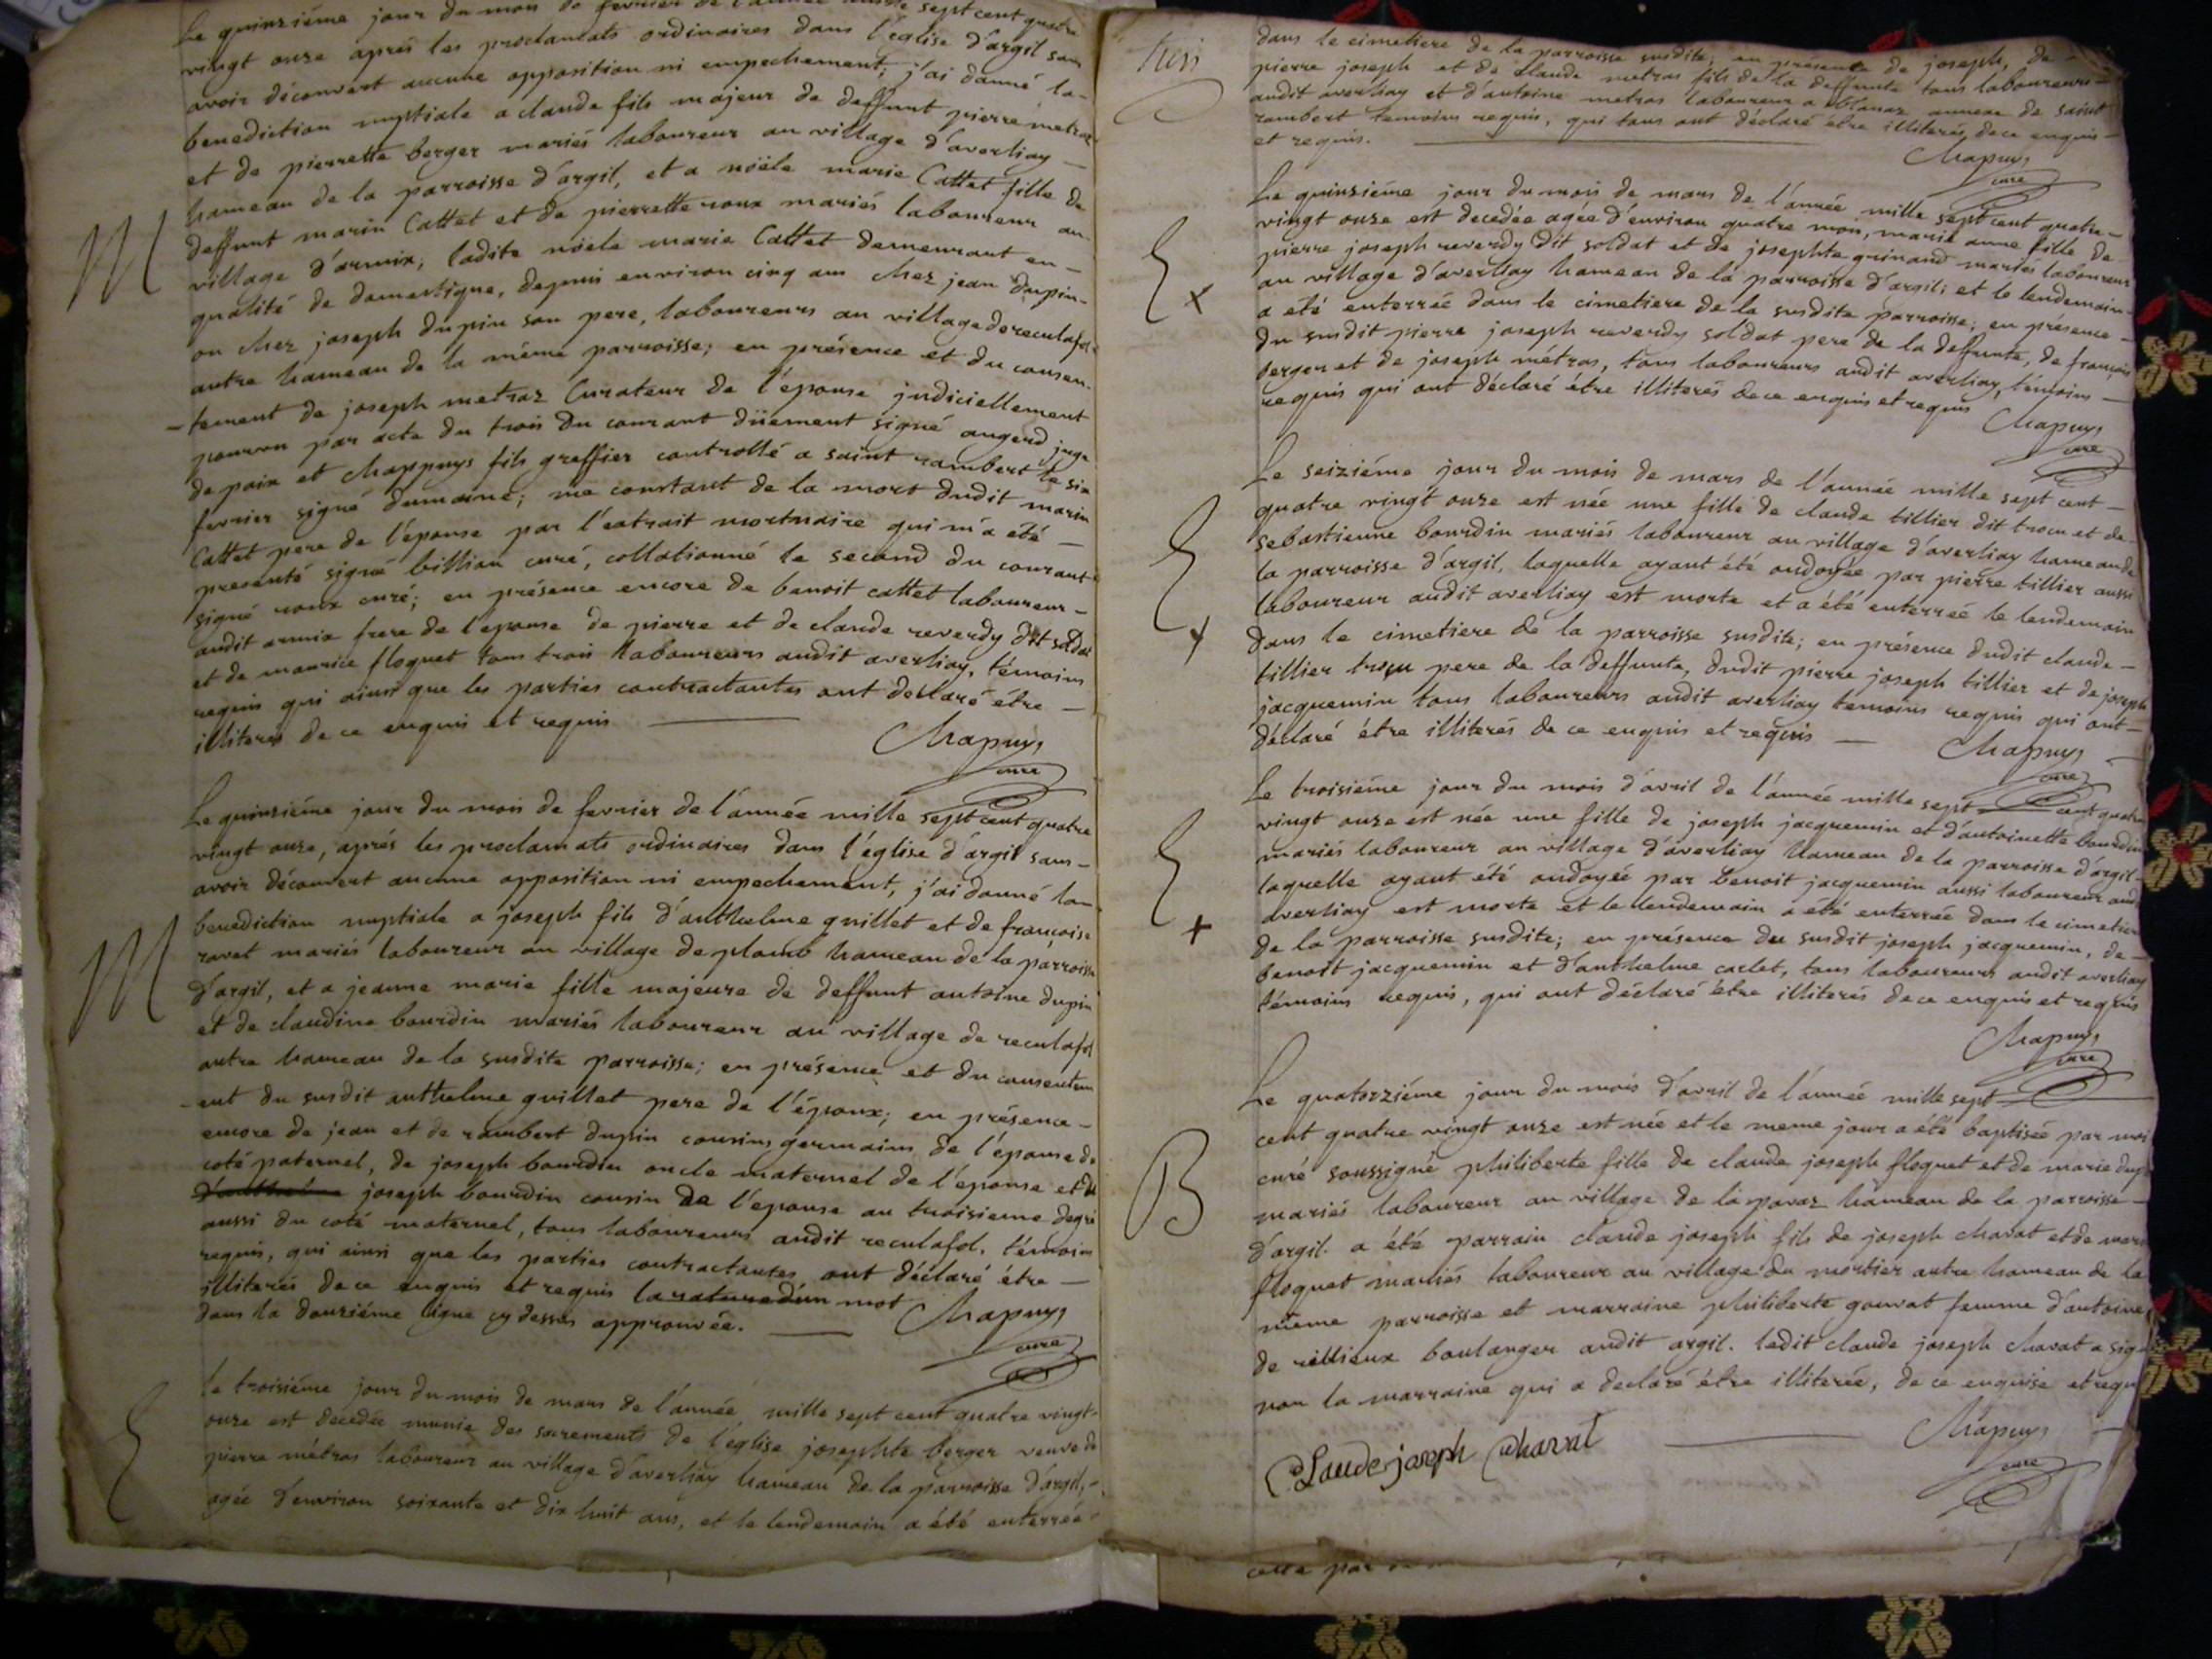 Le quinziéme jour du mois de fevrier de l'année mille sept cent quatre
vingt onze aprés les proclamats ordinaires dans l'église d'argil sans
avoir découvert aucune opposition ni empechement, j'ai donné la
benediction nuptiale a claude fils majeur de deffunt pierre metraz
et de pierrette berger mariés laboureur au village d'averliay
hameau de la parroisse d'argil, et a nöële marie Cattet fille de
deffunt marin Cattet et de pierrette roux mariés laboureur au
village d'armix; ladite nöële marie Cattet demeurant en
qualité de domestique, depuis environ cinq ans chez jean dupin
ou chez joseph dupin son pere, laboureurs au village de reculafol
autre hameau de la méme parroisse; en présence et du consen-
-tement de joseph metraz Curateur de l'épouse judiciellement
pourvu par acte du trois du courant düement signé augerd juge
de paix et Chappuys fils greffier controllé a saint rambert le six
fevrier signé dumaine; me constant de la mort dudit marin
Cattet pere de l'épouse par l'extrait mortuaire qui m'a été
presenté signé billion curé, collationné le second du courant
signé roux curé; en présence encore de benoit cattet laboureur
audit armix frere de l'epouse de pierre et de claude reverdy dit soldat
et de maurice floquet tous trois laboureurs audit averliay, témoins
requis qui ainsi que les parties contractantes ont declaré étre
illiterés de ce enquis et requis
Chapuys
curé
M
Le quinziéme jour du mois de fevrier de l'année mille sept cent quatre
vingt onze, aprés les proclamats ordinaires dans l'église d'argil sans
avoir découvert aucune opposition ni empechement, j'ai donné la
benediction nuptiale a joseph fils d'anthelme guillet et de françoise
ravet mariés laboureur au village de plomb hameau de la parroisse
d'argil, et a jeanne marie fille majeure de deffunt antoine dupin
et de claudine bourdin mariés laboureur au village de reculafol
autre hameau de la susdite parroisse; en présence et du consentem
-ent du susdit anthelme guillet pere de l'époux; en présence
encore de jean et de rambert dupin cousins germains de l'épouse du
coté paternel, de joseph bourdin oncle maternel de l'épouse et de
joseph bourdin cousin de l'épouse au troisieme degré
aussi du coté maternel, tous laboureurs audit reculafol, témoins
requis, qui ainsi que les parties contractantes ont déclaré étre
illiterés de ce enquis et requis la rature d'un mot
dans la douziéme ligne cy dessus approuvée.
Chapuys
curé
M
le troisiéme jour du mois de mars de l'année mille sept cent quatre vingt
onze est decedée munie des sacrements de l'église josephte berger veuve de
pierre métras laboureur au village d'averliay hameau de la parroisse d'argil,
agée d'environ soixante et dix huit ans, et le lendemain a été enterrée
dans le cimetiere de la parroisse susdite; en présence de joseph, de
pierre joseph et de claude metras fils de la deffunte tous laboureurs
audit averliay et d'antoine metras laboureur a blanaz annexe de saint
rambert temoins requis, qui tous ont déclaré étre illiterés de ce enquis
et requis.
Chapuys
curé
Le quinziéme jour du mois de mars de l'année mille sept cent quatre
vingt onze est decedée agée d'environ quatre mois, marie anne fille de
pierre joseph reverdy dit soldat et de josephte guinand mariés laboureur
au village d'averliay hameau de la parroisse d'argil; et le lendemain
a été enterrée dans le cimetiere de la susdite parroisse; en présence
du susdit pierre joseph reverdy soldat pere de la deffunte, de françois
berger et de joseph métras, tous laboureurs audit averliay, témoins
requis qui ont déclaré étre illiterés de ce enquis et requis
Chapuys
curé
Le seiziéme jour du mois de mars de l'année mille sept cent
quatre vingt onze est née une fille de claude tillier dit troçu et de
sebastienne bourdin mariés laboureur au village d'averliay hameau de
la parroisse d'argil, laquelle ayant été ondoyée par pierre tillier aussi
laboureur audit averliay est morte et a été enterreé le lendemain
dans le cimetiere de la parroisse susdite; en présence dudit claude
tillier troçu pere de la deffunte, dudit pierre joseph tillier et de joseph
jacquemin tous laboureurs audit averliay temoins requis qui ont
déclaré étre illiterés de ce enquis et requis
Chapuys
curé
Le troisiéme jour du mois d'avril de l'année mille sept cent quatre
vingt onze est née une fille de joseph jacquemin et d'antoinette bourdin
mariés laboureur au village d'averliay hameau de la parroisse d'argil
laquelle ayant été ondoyée par benoit jacquemin aussi laboureur aud
averliay est morte et le lendemain a été enterrée dans le cimetiere
de la parroisse susdite; en présence du susdit joseph jacquemin, de
benoit jacquemin et d'anthelme carlet, tous laboureurs audit averliay
témoins requis, qui ont déclaré étre illiterés de ce enquis et requis
Chapuys
curé
Le quatorziéme jour du mois d'avril de l'année mille sept
cent quatre vingt onze est née et le meme jour a été baptisée par moi
curé soussigné philiberte fille de claude joseph floquet et de marie dup
mariés laboureur au village de la pavaz hameau de la parroisse
d'argil. a été parrain claude joseph fils de joseph chavat et de
floquet mariés laboureur au village du mortier autre hameau de la
même parroisse et marraine philiberte gouvat femme d'antoine
de rillieux boulanger audit argil. ledit claude joseph chavat a sig
non la marraine qui a declaré étre illiterée, de ce enquise et requ
B
Claude joseph Chavat
Chapuys
curé